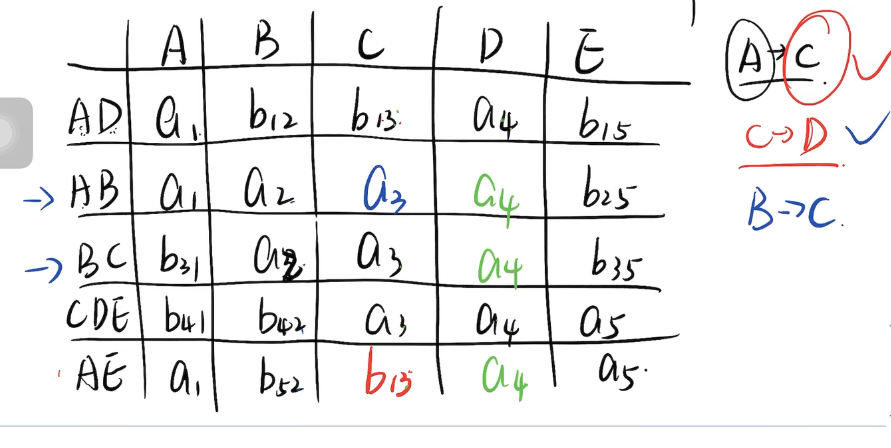 A B C D E
AD a1 b12 b13 a4 b15
A→C ✓
C→D ✓
→ AB a1 a2 a3 a4 b25
B→C.
→ BC b31 a2 a3 a4 b35
CDE b41 b42 a3 a4 a5
AE a1 b52 b13 a4 a5.